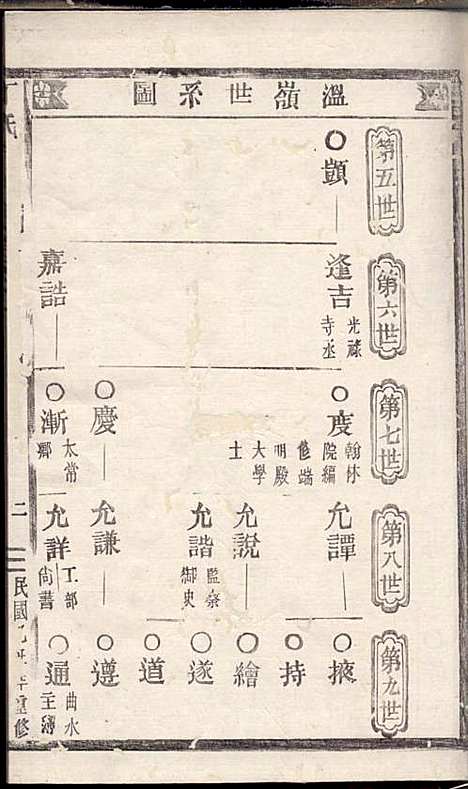 溫嶺世系圖
第五世
顗
第六世
逢吉
光祿
寺丞
嘉誥
第七世
度
翰林
院編
修端
明殿
大學
士
慶
漸
太常
卿
第八世
允譚
允說
允諧
監察
御史
允謙
允詳
工部
尚書
第九世
掖
持
繪
遂
道
遵
通
曲水
主簿
氏
二
民國九年重修